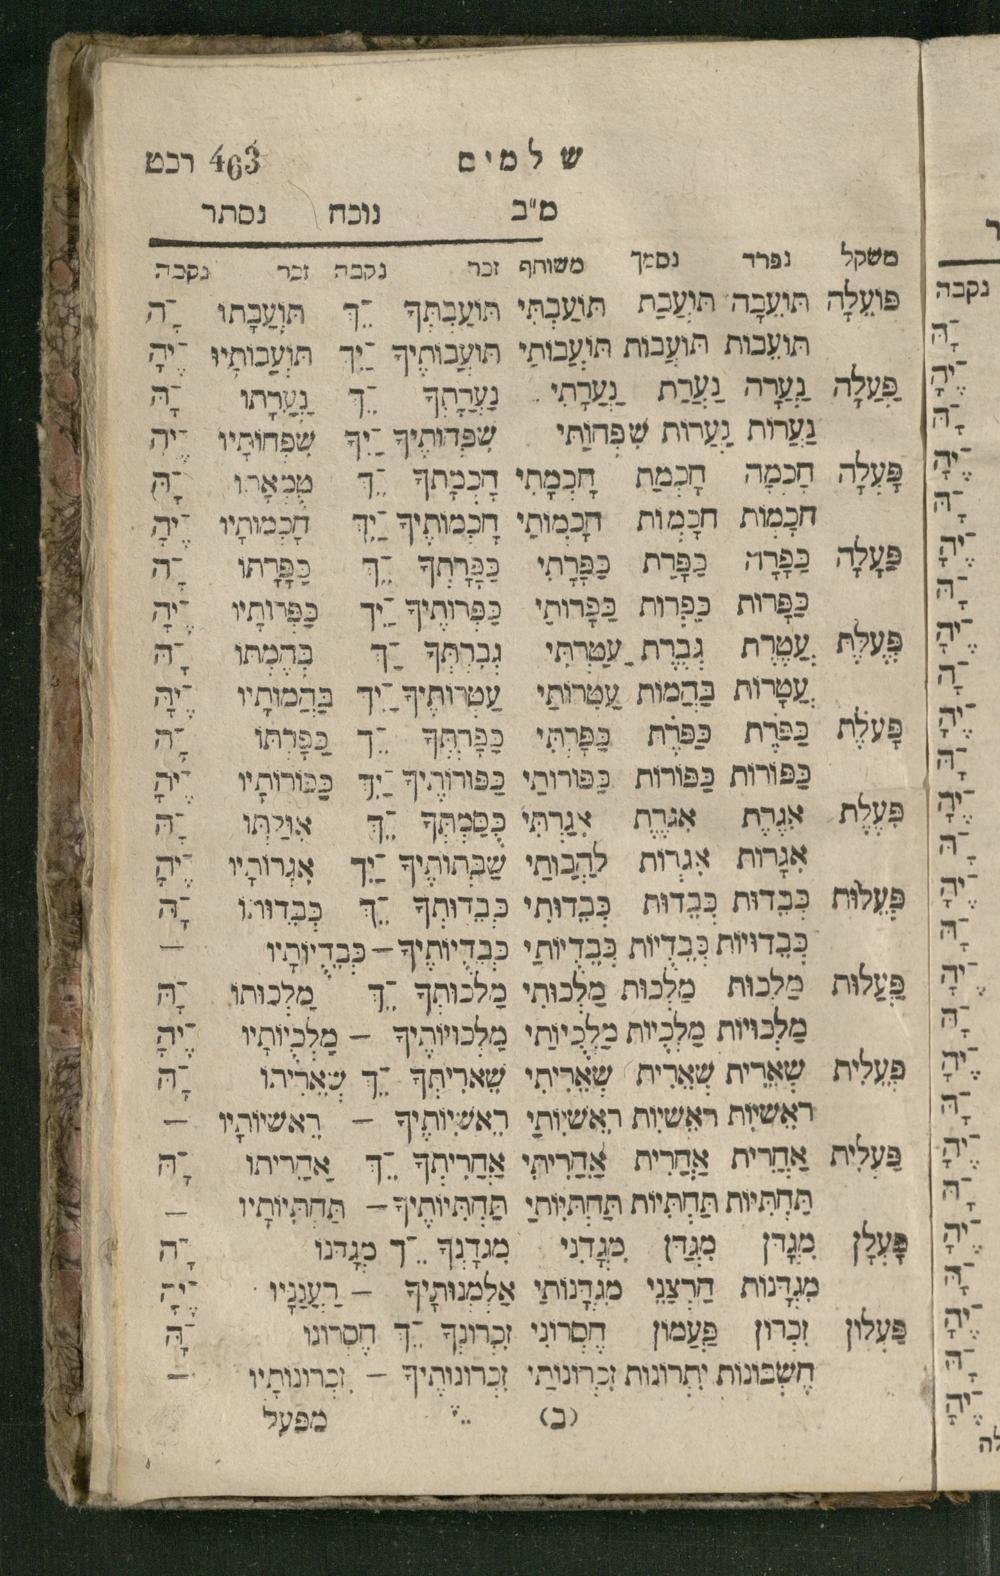 שלמים 463 רכט
מ"ב נוכח נסתר
משקל נפרד נסמך משותף זכר נקבה זכר נקבה
פּוֹעֵלָה תּוֹעֵבָה תּוֹעֲבַת תּוֹעַבְתִּי תּוֹעַבְתְּךָ ־ֵךְ תּוֹעֲבָתוֹ ־ָהּ
תּוֹעֵבוֹת תּוֹעֲבוֹת תּוֹעֲבוֹתַי תּוֹעֲבוֹתֶיךָ ־ַיִךְ תּוֹעֲבוֹתָיו ־ֶיהָ
פַּעֲלָה נַעֲרָה נַעֲרַת נַעֲרָתִי נַעֲרָתְךָ ־ֵךְ נַעֲרָתוֹ ־ָהּ
נַעֲרוֹת נַעֲרוֹת שִׁפְחוֹתַי שִׁפְחוֹתֶיךָ ־ַיִךְ שִׁפְחוֹתָיו ־ֶיהָ
פָּעְלָה חָכְמָה חָכְמַת חָכְמָתִי חָכְמָתְךָ ־ֵךְ טֻמְאָתוֹ ־ָהּ
חָכְמוֹת חָכְמוֹת חָכְמוֹתַי חָכְמוֹתֶיךָ ־ַיִךְ חָכְמוֹתָיו ־ֶיהָ
פַּעָלָה כַּפָּרָה כַּפָּרַת כַּפָּרָתִי כַּפָּרָתְךָ ־ֵךְ כַּפָּרָתוֹ ־ָהּ
כַּפָּרוֹת כַּפָּרוֹת כַּפָּרוֹתַי כַּפָּרוֹתֶיךָ ־ַיִךְ כַּפָּרוֹתָיו ־ֶיהָ
פְּעֶלֶת עֲטֶרֶת גְּבֶרֶת עֲטַרְתִּי גְּבִרְתְּךָ ־ֵךְ בְּהֶמְתּוֹ ־ָהּ
עֲטָרוֹת בַּהֲמוֹת עַטְרוֹתַי עַטְרוֹתֶיךָ ־ַיִךְ בַּהֲמוֹתָיו ־ֶיהָ
פָּעֹלֶת כַּפֹּרֶת כַּפֹּרֶת כַּפָּרְתִּי כַּפָּרְתְּךָ ־ֵךְ כַּפָּרְתּוֹ ־ָהּ
כַּפּוֹרוֹת כַּפּוֹרוֹת כַּפּוֹרוֹתַי כַּפּוֹרוֹתֶיךָ ־ַיִךְ כַּפּוֹרוֹתָיו ־ֶיהָ
פִּעֶלֶת אִגֶּרֶת אִגֶּרֶת אִגַּרְתִּי כֻּסַּמְתְּךָ ־ֵךְ ־ָהּ
אִגְּרוֹת אִגְּרוֹת לַהֲבוֹתַי שַׁבְּתוֹתֶיךָ ־ַיִךְ אִגְּרוֹתָיו ־ֶיהָ
פְּעֵלוּת כְּבֵדוּת כְּבֵדוּת כְּבֵדוּתִי כְּבֵדוּתְךָ ־ֵךְ כְּבֵדוּתוֹ ־ָהּ
כְּבֵדוּיוֹת כְּבֵדֻיוֹת כְּבֵדֻיוֹתַי כְּבֵדֻיוֹתֶיךָ – כְּבֵדֻיוֹתָיו –
פַּעְלוּת מַלְכוּת מַלְכוּת מַלְכוּתִי מַלְכוּתְךָ ־ֵךְ מַלְכוּתוֹ ־ָהּ
מַלְכוּיוֹת מַלְכֻיוֹת מַלְכֻיוֹתַי מַלְכוּיוֹתֶיךָ – מַלְכֻיוֹתָיו ־ֶיהָ
פְּעֵלִית שְׁאֵרִית שְׁאֵרִית שְׁאֵרִיתִי שְׁאֵרִיתְךָ ־ֵךְ שְׁאֵרִיתוֹ ־ָהּ
רֵאשִׁיוֹת רֵאשִׁיוֹת רֵאשִׁיוֹתַי רֵאשִׁיוֹתֶיךָ – רֵאשִׁיוֹתָיו –
פַּעְלִית אַחֲרִית אַחֲרִית אַחֲרִיתִי אַחֲרִיתְךָ ־ֵךְ אַחֲרִיתוֹ ־ָהּ
תַּחְתִּיּוֹת תַּחְתִּיּוֹת תַּחְתִּיּוֹתַי תַּחְתִּיּוֹתֶיךָ – תַּחְתִּיּוֹתָיו –
פִּעְלָן מִגְדָּן מִגְדַּן מִגְדָּנִי מִגְדָּנְךָ ־ֵךְ מִגְדָּנוֹ ־ָהּ
מִגְדָּנוֹת חַרְצַנֵּי מִגְדָּנוֹתַי אַלְמְנוֹתֶיךָ – רַעֲנַנָּיו ־ֶיהָ
פִּעְלוֹן זִכְרוֹן פַּעֲמוֹן חֶסְרוֹנִי זִכְרוֹנְךָ ־ֵךְ חֶסְרוֹנוֹ ־ָהּ
חֶשְׁבּוֹנוֹת יִתְרוֹנוֹת זִכְרוֹנוֹתַי זִכְרוֹנוֹתֶיךָ – זִכְרוֹנוֹתָיו –
(ב) מִפְעָל